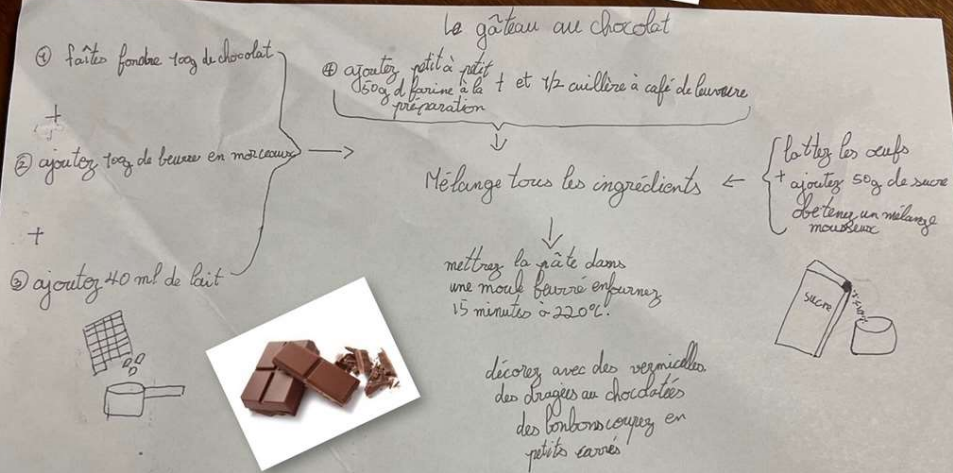 Le gâteau au chocolat
① faîtes fondre 100g de chocolat
+
② ajoutez 100g de beurre en morceaux
+
③ ajoutez 40 ml de lait
④ ajoutez petit à petit
50g d farine à la
préparation
+ et 1/2 cuillère à café de levure
Mélange tous les ingrédients
battez les oeufs
+ ajoutez 50g de sucre
obetenez un mélange
mousseux
mettrez la pâte dans
une moule beurré enfournez
15 minutes à 220°C.
décorez avec des vermicelles
des dragées au chocolatées
des bonbons coupez en
petits carrés
SUCRE